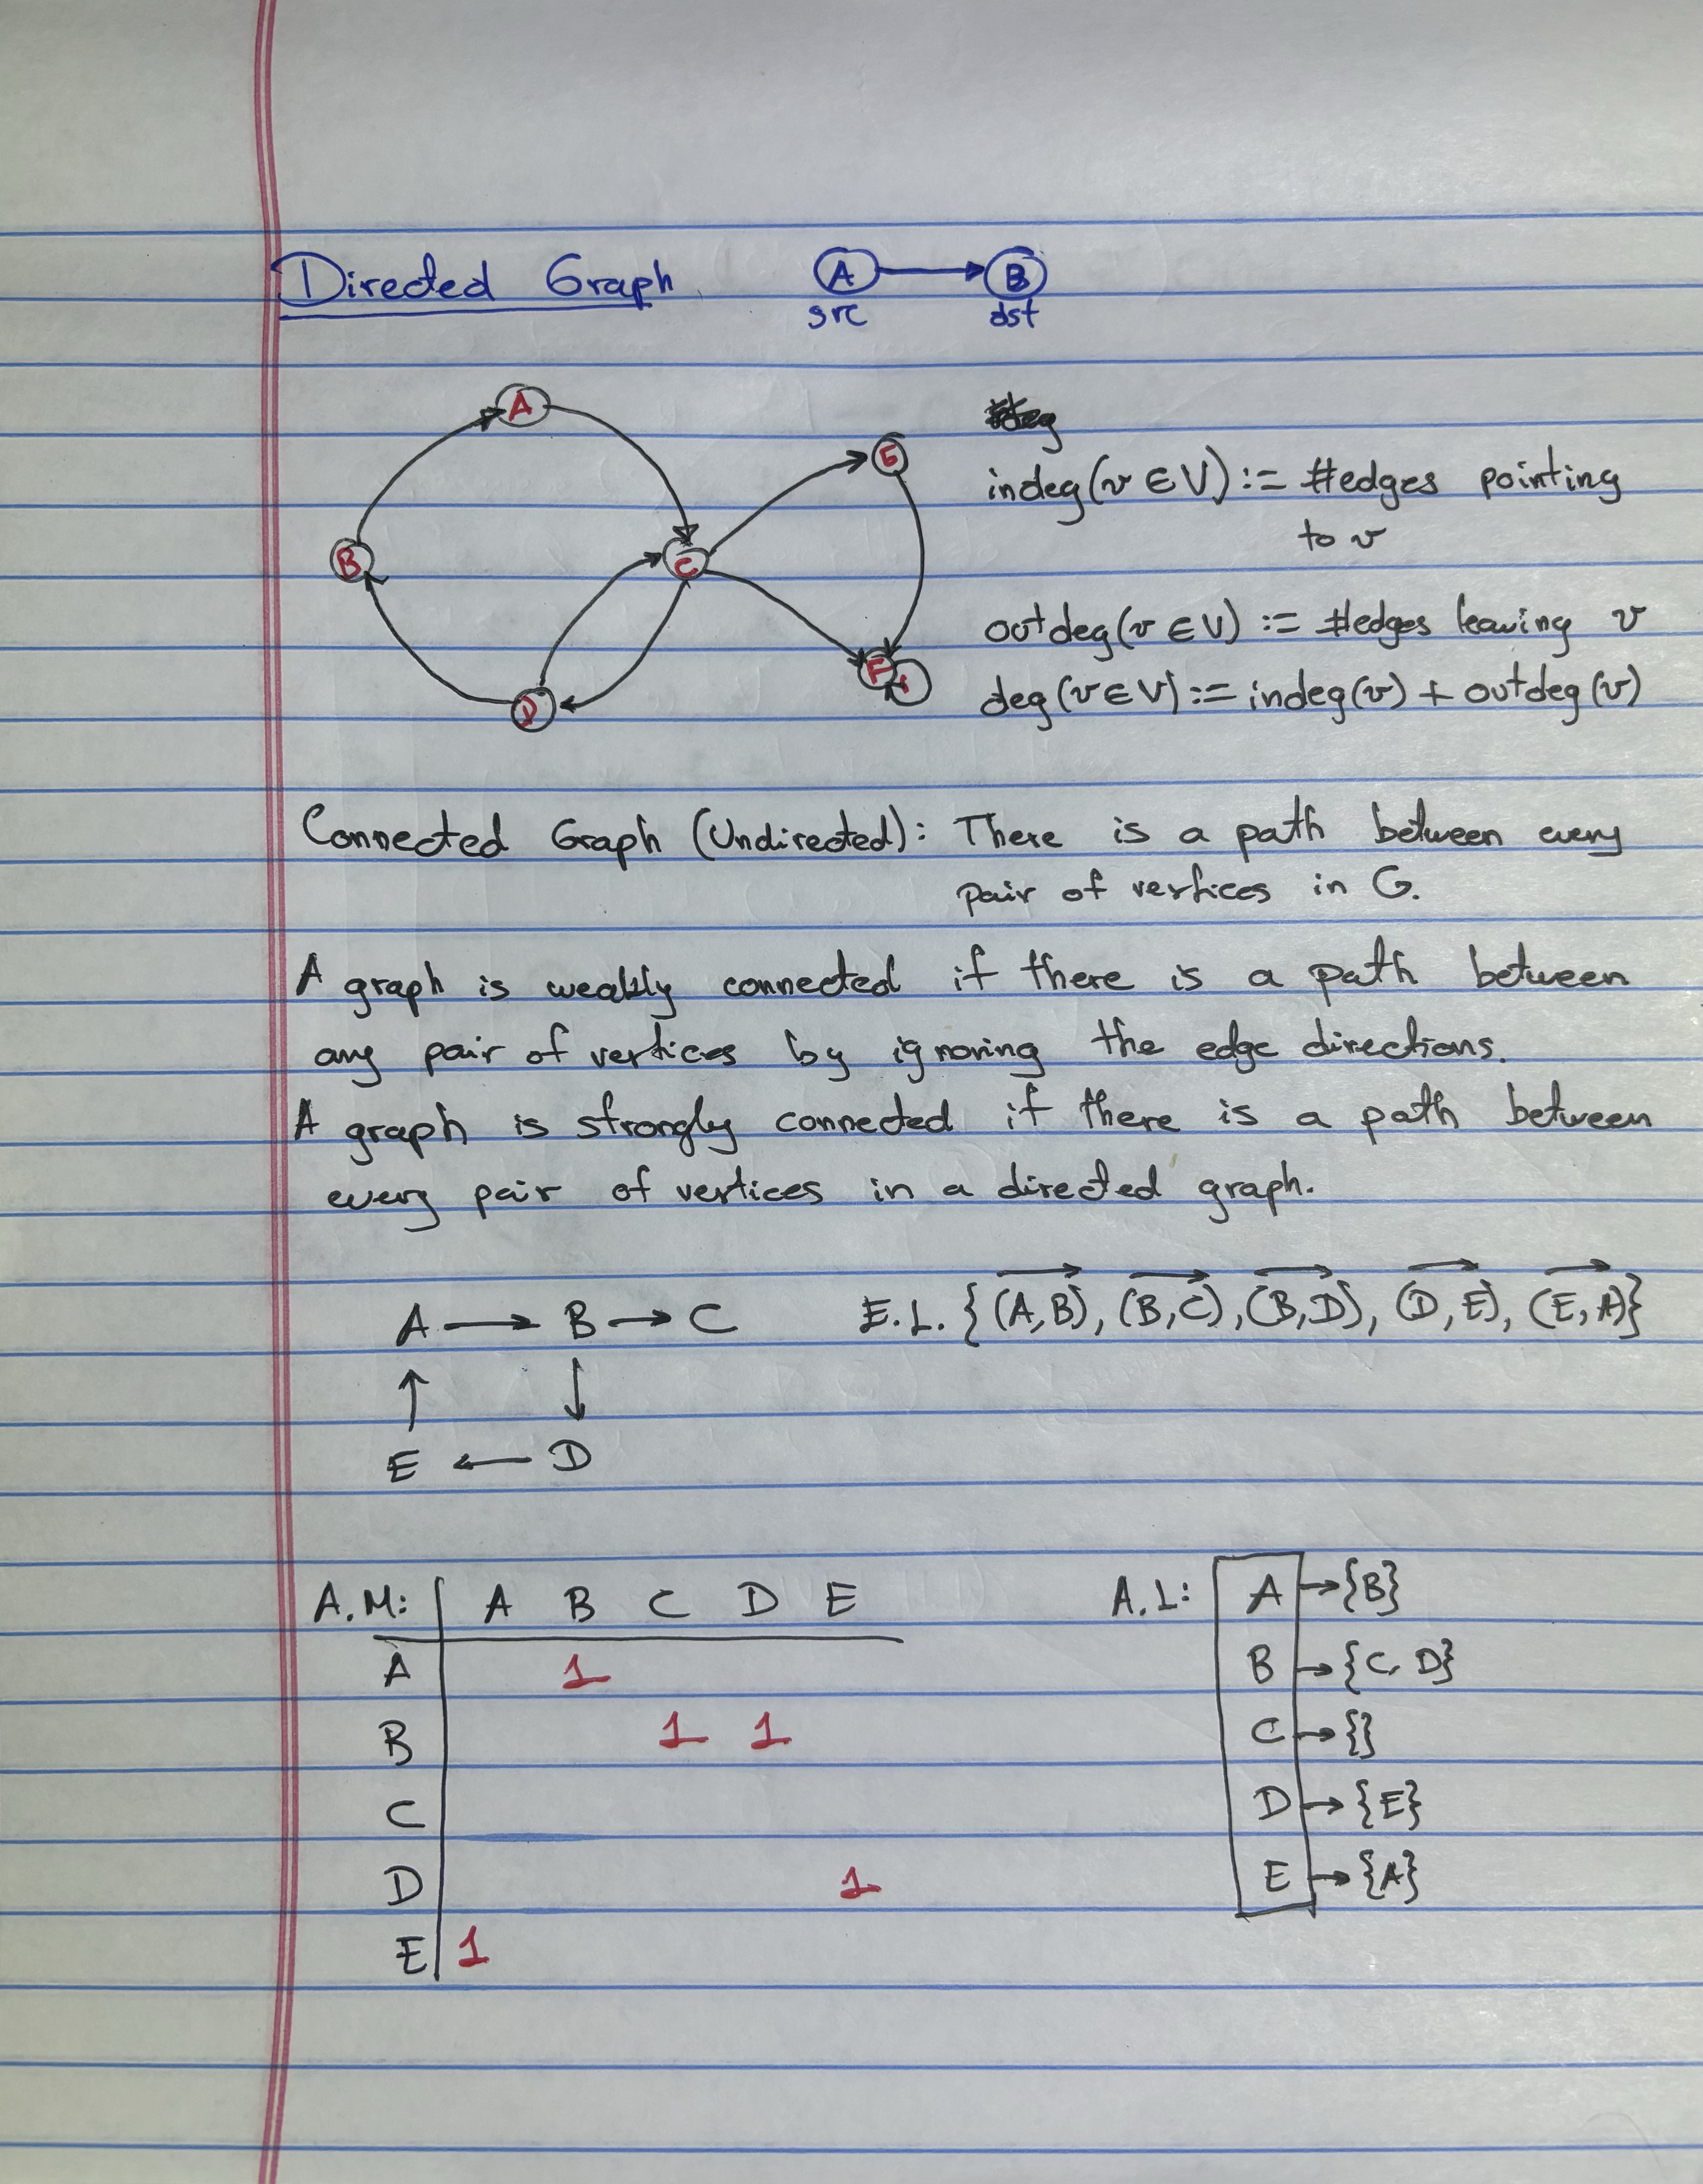 Directed Graph
A B
src dst
A
B C
D F
indeg(v ∈ V) := #edges pointing
to v
outdeg(v ∈ V) := #edges leaving v
deg(v ∈ V) := indeg(v) + outdeg(v)
Connected Graph (Undirected): There is a path between every
pair of vertices in G.
A graph is weakly connected if there is a path between
any pair of vertices by ignoring the edge directions.
A graph is strongly connected if there is a path between
every pair of vertices in a directed graph.
A → B → C
↑ ↓
E ← D
E.L. {(A,B), (B,C), (B,D), (D,E), (E,A)}
A.M: A B C D E
A 1
B 1 1
C
D 1
E 1
A.L: A → {B}
B → {C, D}
C → {}
D → {E}
E → {A}